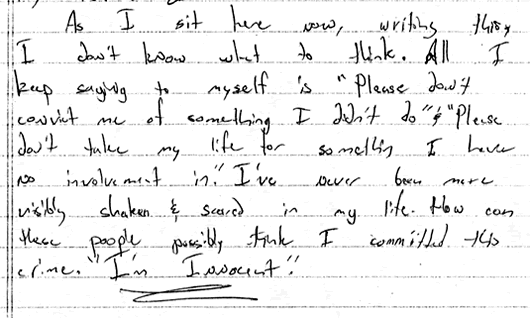 As I sit here now, writing this,
I don't know what to think. All I
keep saying to myself is "Please don't
convict me of something I didn't do" & "Please
don't take my life for somethin I have
no involvement in." I've never been more
visibly shaken & scared in my life. How can
these people possibly think I committed this
crime. "I'm Innocent".